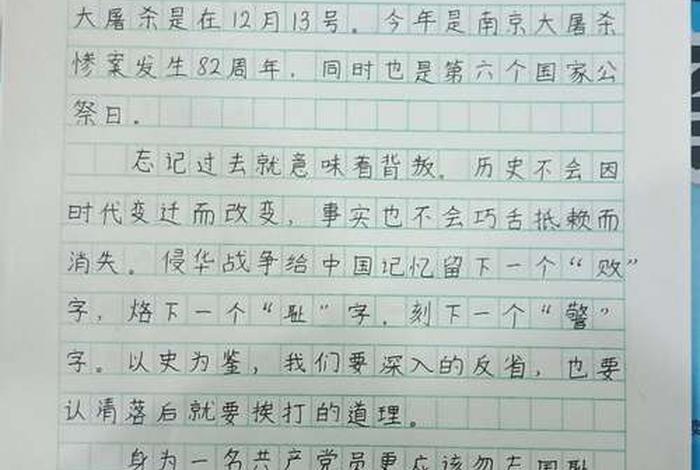 大屠杀是在12月13号。今年是南京大屠杀
惨案发生82周年，同时也是第六个国家公
祭日。
忘记过去就意味着背叛。历史不会因
时代变迁而改变，事实也不会巧舌抵赖而
消失。侵华战争给中国记忆留下一个“败”
字，烙下一个“耻”字，刻下一个“警”
字。以史为鉴，我们要深入的反省，也要
认清落后就要挨打的道理。
身为一名共产党员更应该勿忘国耻